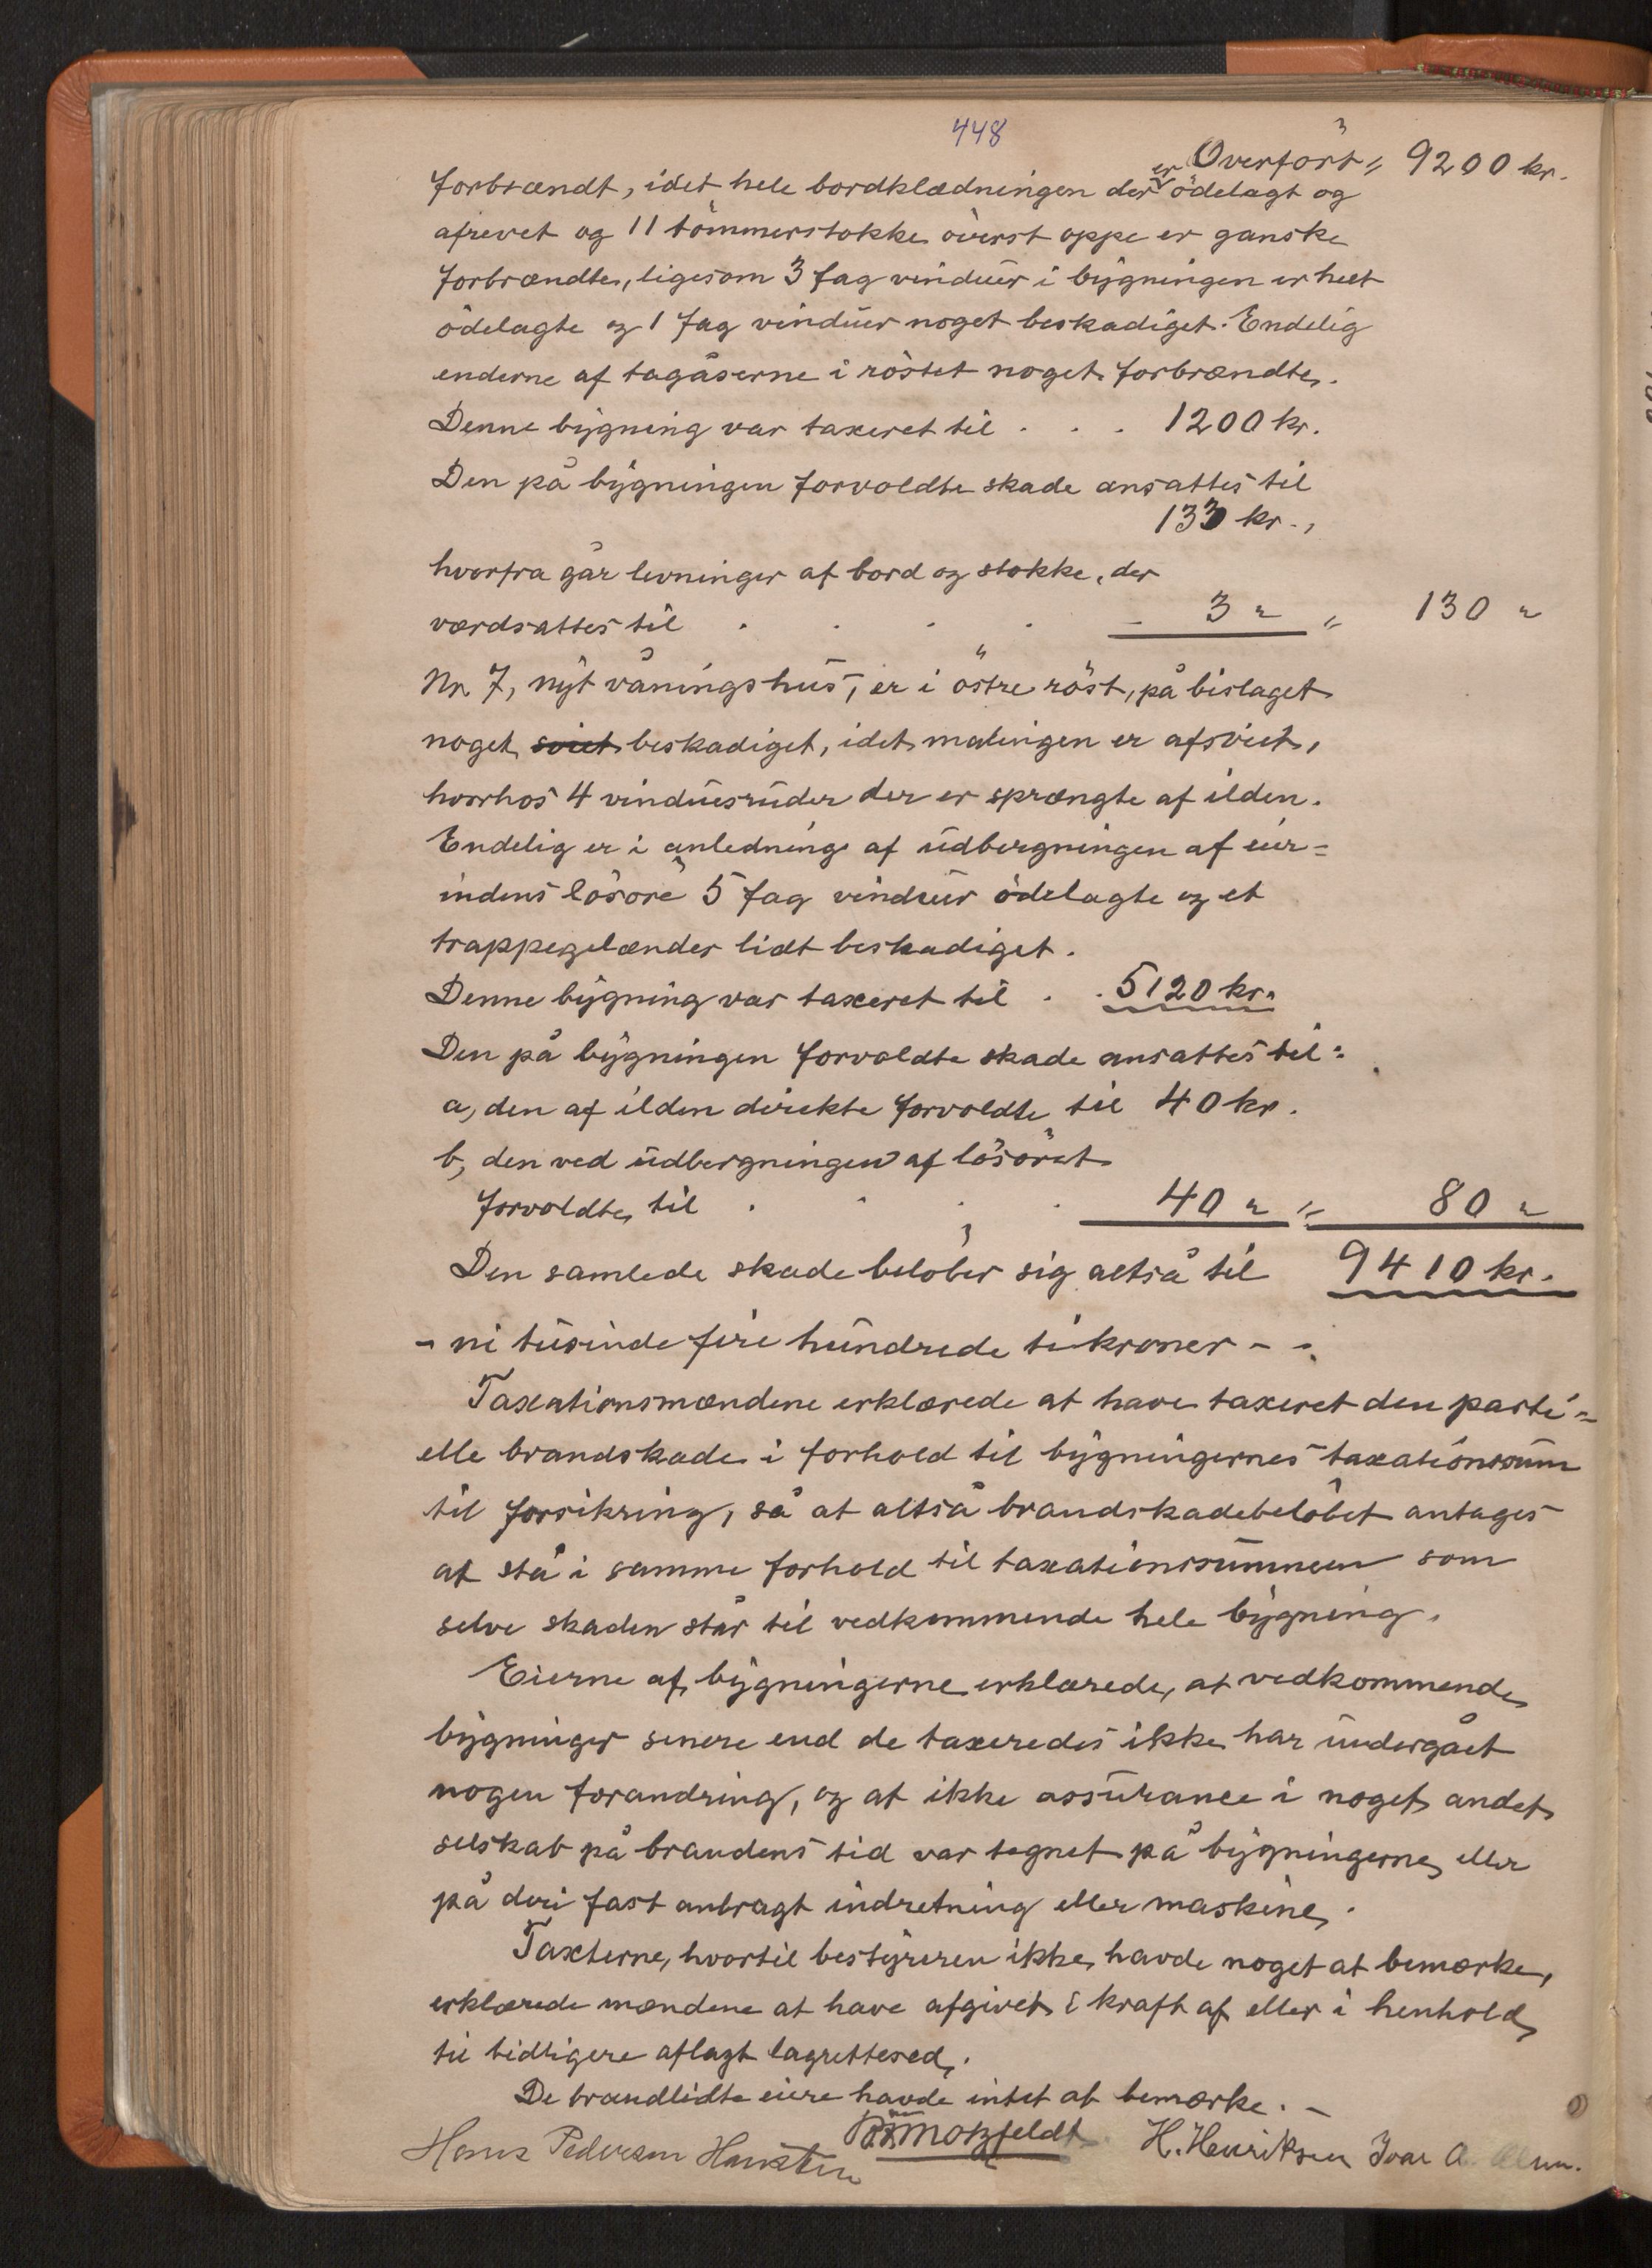 448
Overført „ 9200 kr.
forbrændt, idet hele bordklædningen der er ödelagt og
afrevet og 11 tömmerstokke överst oppe er ganske
forbrændte, ligesom 3 fag vinduer i bygningen er helt
ödelagte og 1 fag vinduer noget beskadiget. Endelig
enderne af tagåserne i röstet noget forbrændte.
Denne bygning var taxeret til . . . 1200 kr.
Den på bygningen forvoldte skade ansattes til
133 kr.,
hvorfra går levninger af bord og stokke, der
værdsattes til . . . . - 3 " „ 130 "
Nr. 7, nyt våningshus, er i östre röst, på bislaget
noget sviet beskadiget, idet malingen er afsviet,
hvorhos 4 vinduesruder der er sprængte af ilden.
Endelig er i anledning af udbergningen af eier-
indens lösöre 5 fag vinduer ödelagte og et
trappegelænder lidt beskadiget.
Denne bygning var taxeret til . . 5120 kr.
Den på bygningen forvoldte skade ansattes til:
a, den af ilden direkte forvoldte til 40 kr.
b, den ved udbergningen af lösöret
forvoldte, til . . . . 40 " „ 80 "
Den samlede skade belöber sig altså til 9410 kr.
- ni tusinde fire hundrede ti kroner - -.
Taxationsmændene erklærede at have taxeret den parti-
elle brandskade i forhold til bygningernes taxationssum
til forsikring, så at altså brandskadebelöbet antages
at stå i samme forhold til taxationssummen som
selve skaden står til vedkommende hele bygning.
Eierne af bygningerne erklærede, at vedkommende
bygninger senere end de taxeredes ikke har undergået
nogen forandring, og at ikke assurance i noget andet
selskab på brandens tid var tegnet på bygningerne eller
på deri fast anbragt indretning eller maskine.
Taxterne, hvortil bestyreren ikke havde noget at bemærke,
erklærede mændene at have afgivet i kraft af eller i henhold
til tidligere aflagt lagrettesed.
De brandlidte eiere havde intet at bemærke. -
Hans Pedersen Motzfeldt H. Henriksen Ivar A.